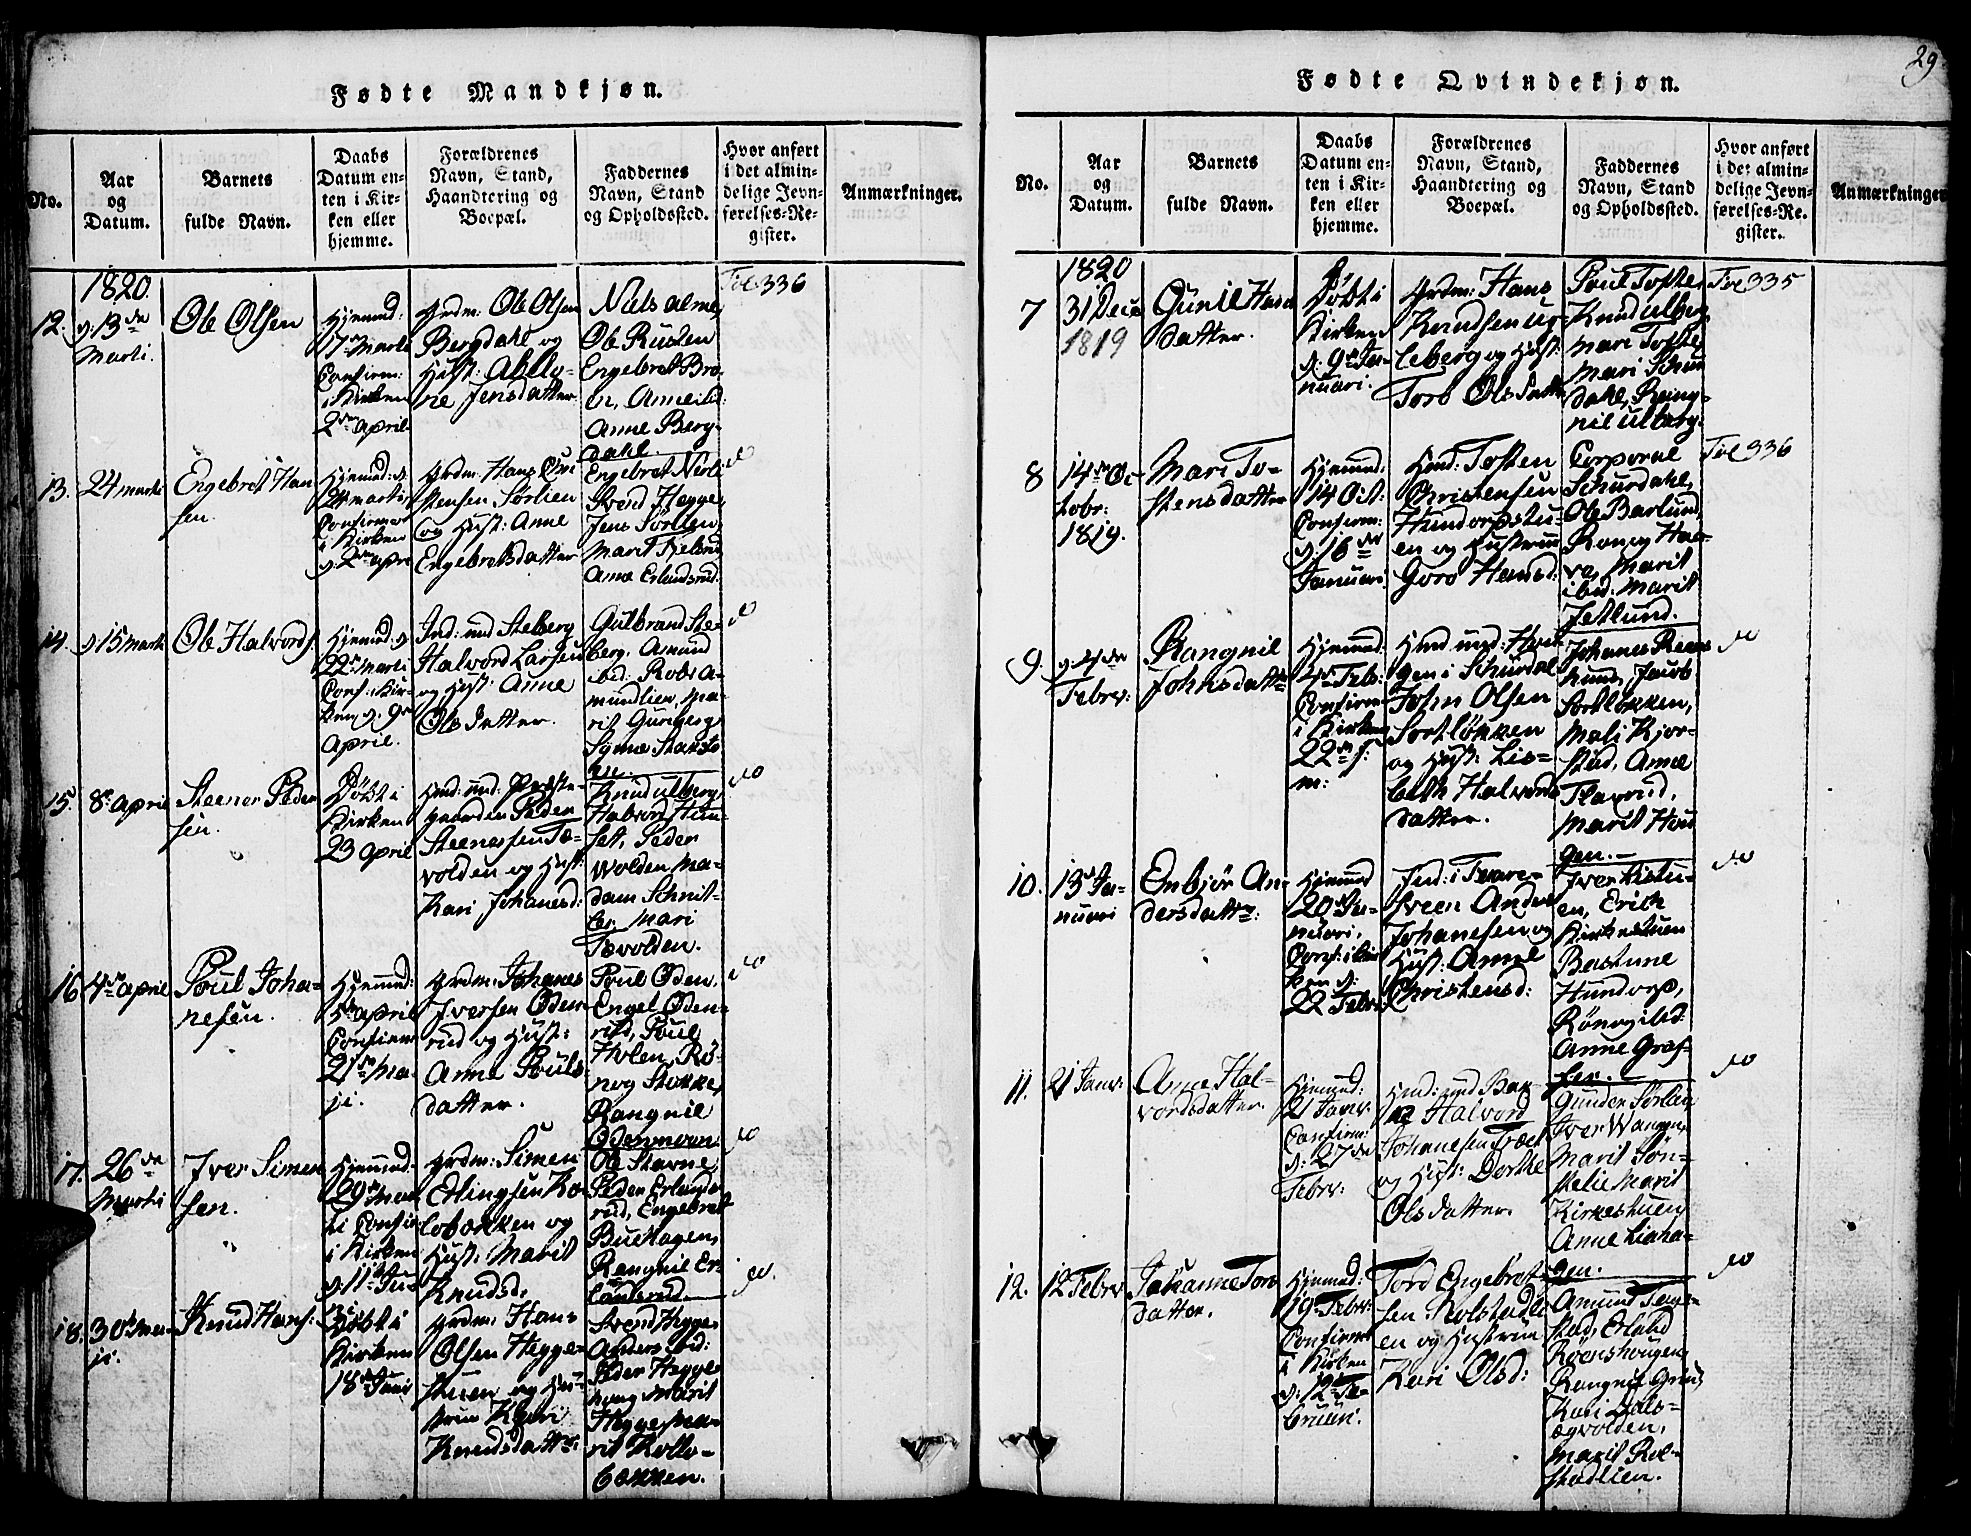 29
Fødte Mandkjøn.
No.
Aar
og
Datum.
Barnets
fulde Navn.
Daabs
Datum en-
ten i Kir-
ken eller
hjemme.
Forældrenes
Navn, Stand,
Haandtering og
Boepæl.
Faddernes
Navn, Stand
og Opholdssted.
Hvor anført
i det almin-
delige Jevn-
førelses-Re-
gister.
Anmærkninger.
1820.
12.
d: 13de
Marti.
Ole Olsen
Hjemmed:
17de Marti
Confirm:
i Kirken
2den April
Grdm: Ole Olsen
Bergdahl og
Hust:
Jensdatter
Niels
Ole Rusten
Engebret Bro-
en, Anne ibid:
Anne Berg-
dahl.
Fol 336
13.
24 marti
Engebret Han
sen.
Hjemmed: d
24 marti
Confirmert
i Kirken
d: 2den April
Grdm: Hans Chri
stensen Sørlien
og Hust: Anne
Engebretsdatter
Engebret
Svend Hegge,
Jens Sørlien,
Marit
Anne Erlandsrud.
do
14.
d: 15 Marti
Ole Halvords.
Hjemmed: d
22de Marti
Conf: i Kir-
ken d: 9de
April.
Ind: und Steberg
Halvord Larsen
og Hust: Anne
Olsdatter.
Gulbrand Ste-
berg, Amund
ibid:
mundlien, Ma-
rit
do
15.
8de April
Steener Peder
sen.
Døbt i
Kirken
23 April
Hmd: und: Præste-
gaarden Peder
Steenersen Tæ-
volden og Hust:
Kari Johanesd:
Knud Ulberg,
Halvord Hun-
Peder
Wolden, Ma-
dam Schnit-
ler, Mari
Tævolden.
do
16
4de April
Poul Joha-
nesen.
Hjemmed:
5de April
Confirm
21de Ma-
ji.
Grdm: Johanes
Iversen Oden-
rud og Hust:
Anne Pouls
datter.
Poul Oden,
Engel Oden-
rud, Poul
Holen, Rø-
nog Stokke,
Rangnil
do
17.
26de
Marti
Iver Simen
sen.
Hjemmed:
29de Mar
ti Confir
i Kirken
d: 11te Ju-
ni
Grdm: Simen
Erlingsen Ko-
lobækken og
Hust: Marit
Knudsd.
Ole Stavne,
Peder Erlands-
rud, Engebret
Buehagen,
Rangnil Er-
landsrud.
do
18.
30te Ma-
ji.
Knud Hans:
Døbt i
Kirken
18de Juni
Grdm: Hans
Olsen Hegge-
stuen og Hu-
strue Kari
Knudsdatter.
Svend Hegge,
Anders ibid:
Peder Hegge
Marit
Hegge, Ma-
rit Kollo-
bækken.
do.
Fødte Qvindekjøn.
No.
Aar
og
Datum.
Barnets
fulde Navn.
Daabs
Datum en-
ten i Kir-
ken eller
hjemme.
Forældrenes
Navn, Stand,
Haandtering og
Boepæl.
Faddernes
Navn, Stand
og Opholdssted.
Hvor anført
i det almin-
delige Jevn-
førelses-Re-
gister.
Anmærkninger
1820
7
31 Dece
1819
Gunil Hans
datter.
Døbt i
Kirken
d: 9de Ja-
nuari.
Grdm: Hans
Knudsen Ul-
leberg og Hust:
Torø Olsdatt
Poul Tofte,
Knud Ulberg,
Mari Tofte,
Mari Schur
dahl, Rang-
nil Ulberg.
Fol 335
8
14de Oc-
tobr:
1819.
Mari To-
stensdatter
Hjemmed:
14 Oct:
Confirm:
d: 16de
Januari
Hmd: Tosten
Christensen
Hundorpstu-
en og Hustrue
Goro Hansd:
Corporal
Schurdahl,
Ole Barlund,
Marit
ibid: Marit
Jetlund.
Fol 336
9.
d: 4de
Febrv:
Rangnil
Johnsdatter
Hjemmed:
4de Feb:
Confirm
i Kirken
22de s:
m:
Hmd und: Hou
gen i Schurdal
John Olsen
Sortløkken
og Hust: Lis-
beth Halvords
datter.
Johanes
Jacob
Sortløkken,
Mali Kjør-
stad, Anne
Flavrud,
Marit Hou
gen.
do
10.
13de Ja-
nuari
Enbjør An-
dersdatter:
Hjemmed
20de Ja-
nuari,
Conf: i Kir
ken d:
22 Febr:
Ind: i
Anders
Johanesen og
Hust: Anne
Christensd:
Iver Kistu-
en, Erich
Kirkestuen
Hundorp,
Rønog ibid:
Anne Graf-
fer.
do
11.
21 Janv:
Anne Hal-
vordsdatter.
Hjemmed:
21 Janv:
Confirm:
d: 27de
Febrv:
Hmd: und Bak-
ke Halvord
Johanesen Træet
og Hust: Dorthe
Olsdatter.
Gunder Sørlien
Iver Wangen,
Marit
Marit
Kirkestuen,
Anne
gen.
do
12.
12 Febrv
Johanne Tord
datter.
Hjemmed:
19de Febrv:
Confirm
i Kirken
d: 12te
Tord Engebret-
sen Rolstadli-
en og Hustrue
Kari Olsd:
Amund
stad, Erland
Rangnil
Kari
Marit Rol-
stadlien.
do